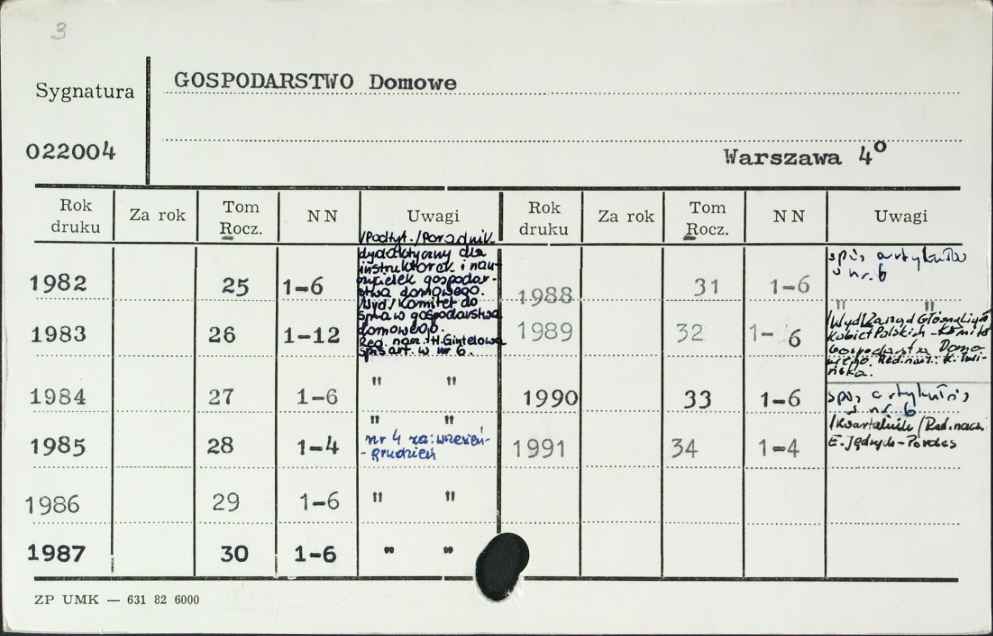 3
Sygnatura
GOSPODARSTWO Domowe
022004
Warszawa 4°
Rok druku Za rok Tom Rocz. NN Uwagi Rok druku Za rok Tom Rocz. NN Uwagi
1982 25 1-6
/Podtyt./Poradnik
dydaktyczny dla
instruktorek i nau-
czycielek gospodar-
stwa domowego.
/Wyd/ Komitet do
spraw gospodarstwa
domowego.
Red. nacz. H. Gintelowa
spis art. w nr 6.
1983 26 1-12
1984 27 1-6 " "
1985 28 1-4 " "
nr 4 za: wrzesień-
-grudzień
1986 29 1-6 " "
1987 30 1-6 " "
1988 31 1-6 spis artykułów
w nr. 6
1989 32 1-6 " "
/Wyd/ Zarząd Główny Ligi
Kobiet Polskich - Komitet
Gospodarstwa Domo-
wego. Red. nacz.: K.
1990 33 1-6 spis artykułów
w nr. 6
1991 34 1-4 /Kwartalnik/ Red. nacz.
E. Jędrych-
ZP UMK — 631 82 6000